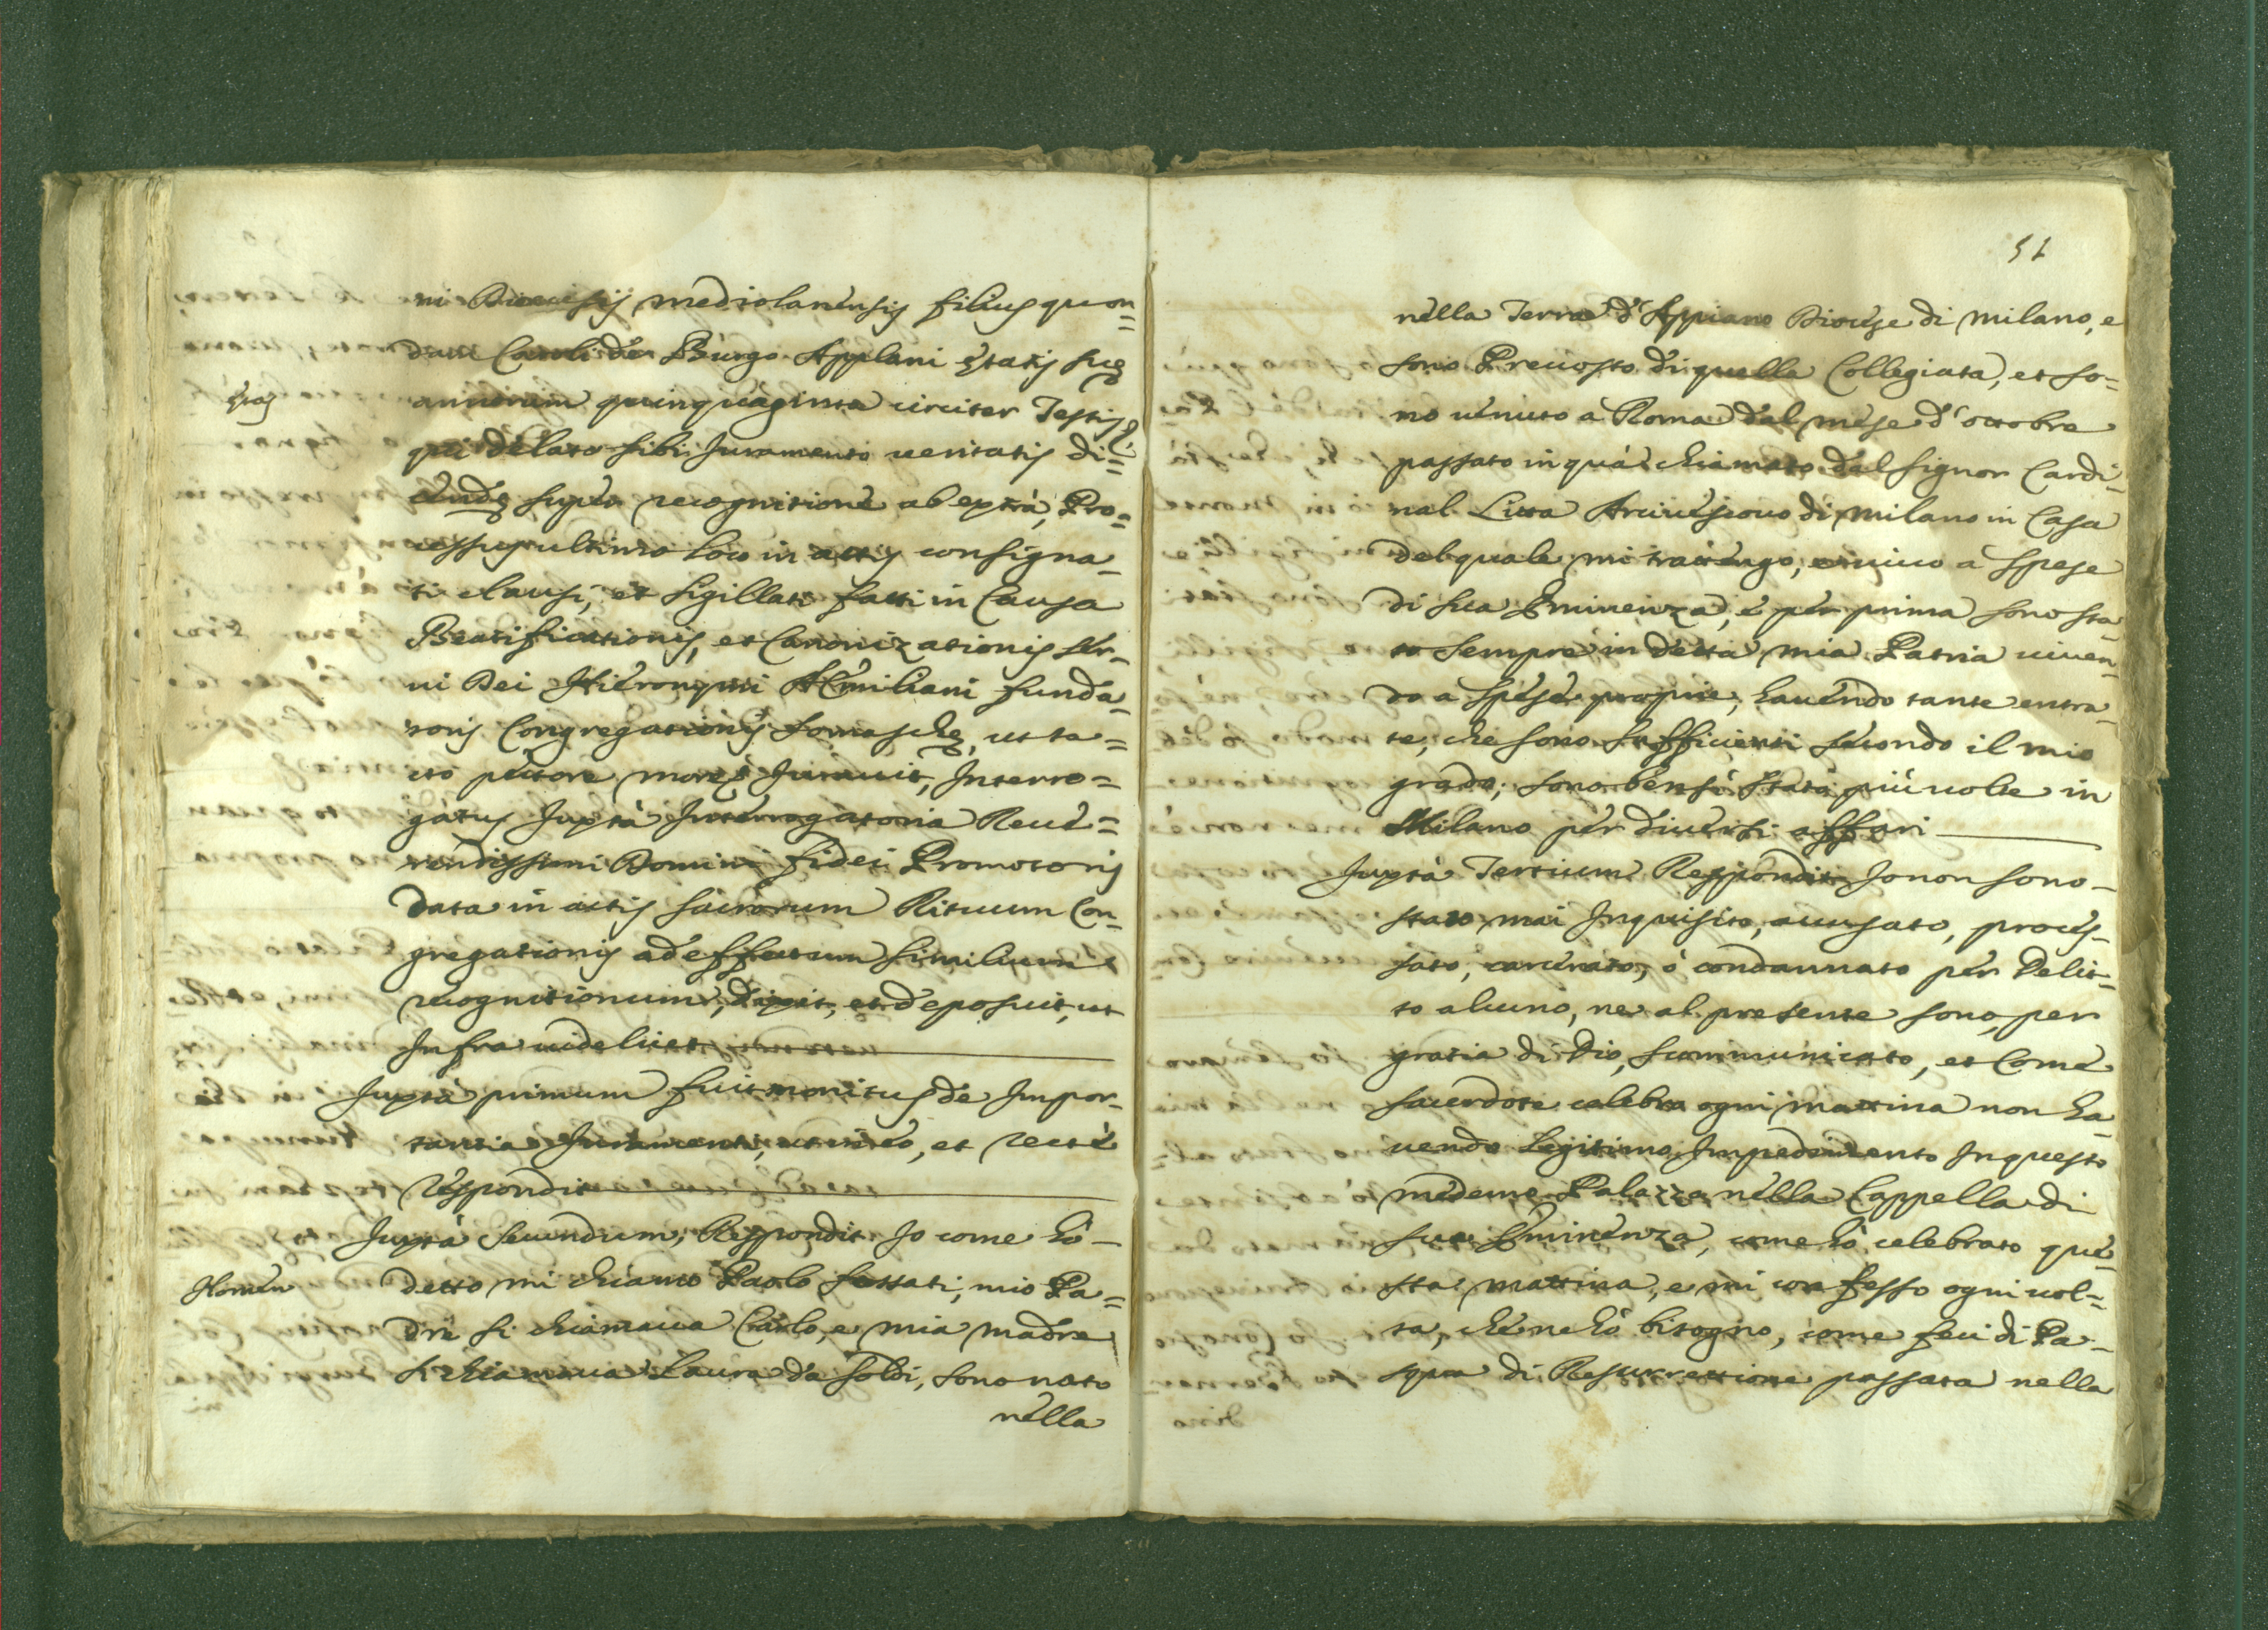 ni Diocesis mediolanensis filius quon=
dam Caroli de Burgo Applani ętatis suę
ętas
annorum quinquaginta circiter Testis
qui delato sibi Juramento veritatis di=
cendę super recognitione ab extrà, Pro=
cessus ultimo loco in actis consigna_
ti clausi, et sigillati facti in Causa
Beatificationis, et Canonizationis ser_
ui Dei Hieronymi Æmiliani funda_
toris Congregationis Somaschę, ut ta=
cto pectore more Jurauit, Interro=
gatus Juxtà Interrogatoria Reue=
rendissimi Domini fidei Promotoris
data in actis sacrorum Rituum Con_
gregationis ad effectum similium
recognitionum, dixit, et deposuit, ut
Infra videlicet
Juxtà primum fuit monitus de Impor_
tantia Juramenti, et recté
respondit
Juxtà secundum, Respondit Jo come hò_
Nomen
detto mi chiamo Paolo fossati, mio Pa=
dre si chiamaua Carlo, e mia madre
si chiamaua Laura da Soldi, sono nato
nella
51
nella Terra d'Appiano Diocese di Milano, e
sono Preuosto di quella Collegiata, et so=
no uenuto à Roma dal mese d'ottobre
passato in quà chiamato dal signor Cardi_
nal Litta Arciuescouo di Milano in Casa
del quale mi trattengo, e uiuo à spese
di sua Eminenza, e per prima sono sta_
to sempre in detta mia Patria uiuen_
do a spese proprie, hauendo tante entra_
te, che sono sufficienti secondo il mio
grado; sono bensi stato più uolte in
Milano per diuersi affari
Juxtà Tertium Respondit Jo non sono_
stato mai Inquisito, accusato, proces_
sato, carcerato, ò condannato per Delit_
to alcuno, ne al presente sono, per
gratia di Dio, scummunicato, et Come
sacerdote celebro ogni mattina non ha_
uendo legitimo Impedimento In questo
medemo Palazzo nella Cappella di
sua Eminenza, come hò celebrato que_
sta mattina, e mi confesso ogni uol=
ta, che ne hò bisogno, come feci di Pa_
squa di Resurrettione passata nella